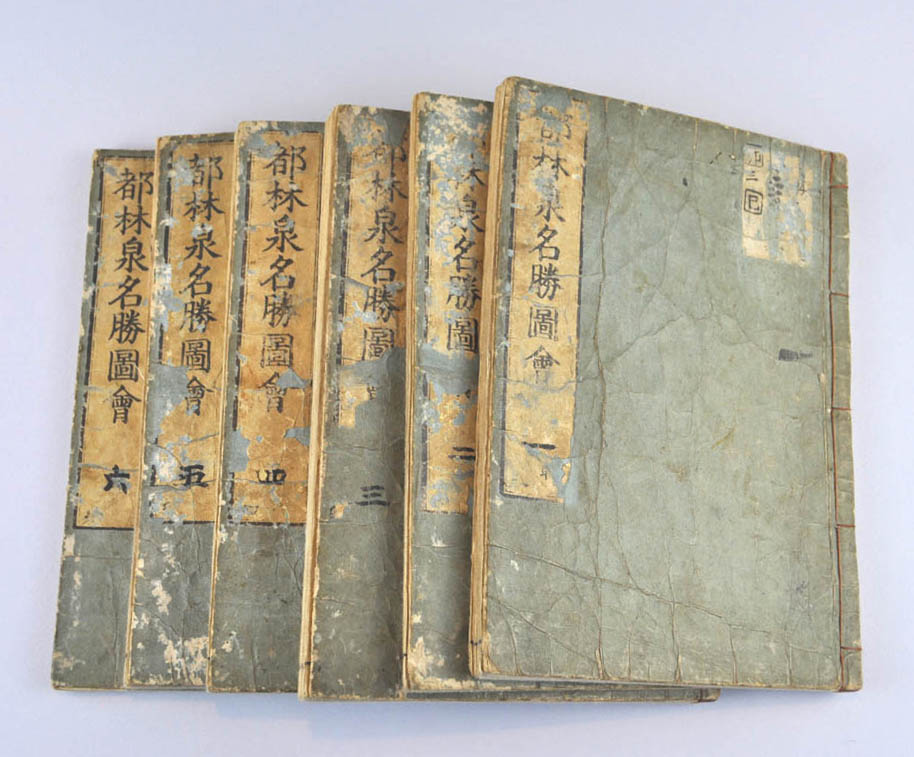 都林泉名勝圖會 一
林泉名勝圖 二
都林泉名勝圖 三
都林泉名勝圖會 四
都林泉名勝圖會 五
都林泉名勝圖會 六